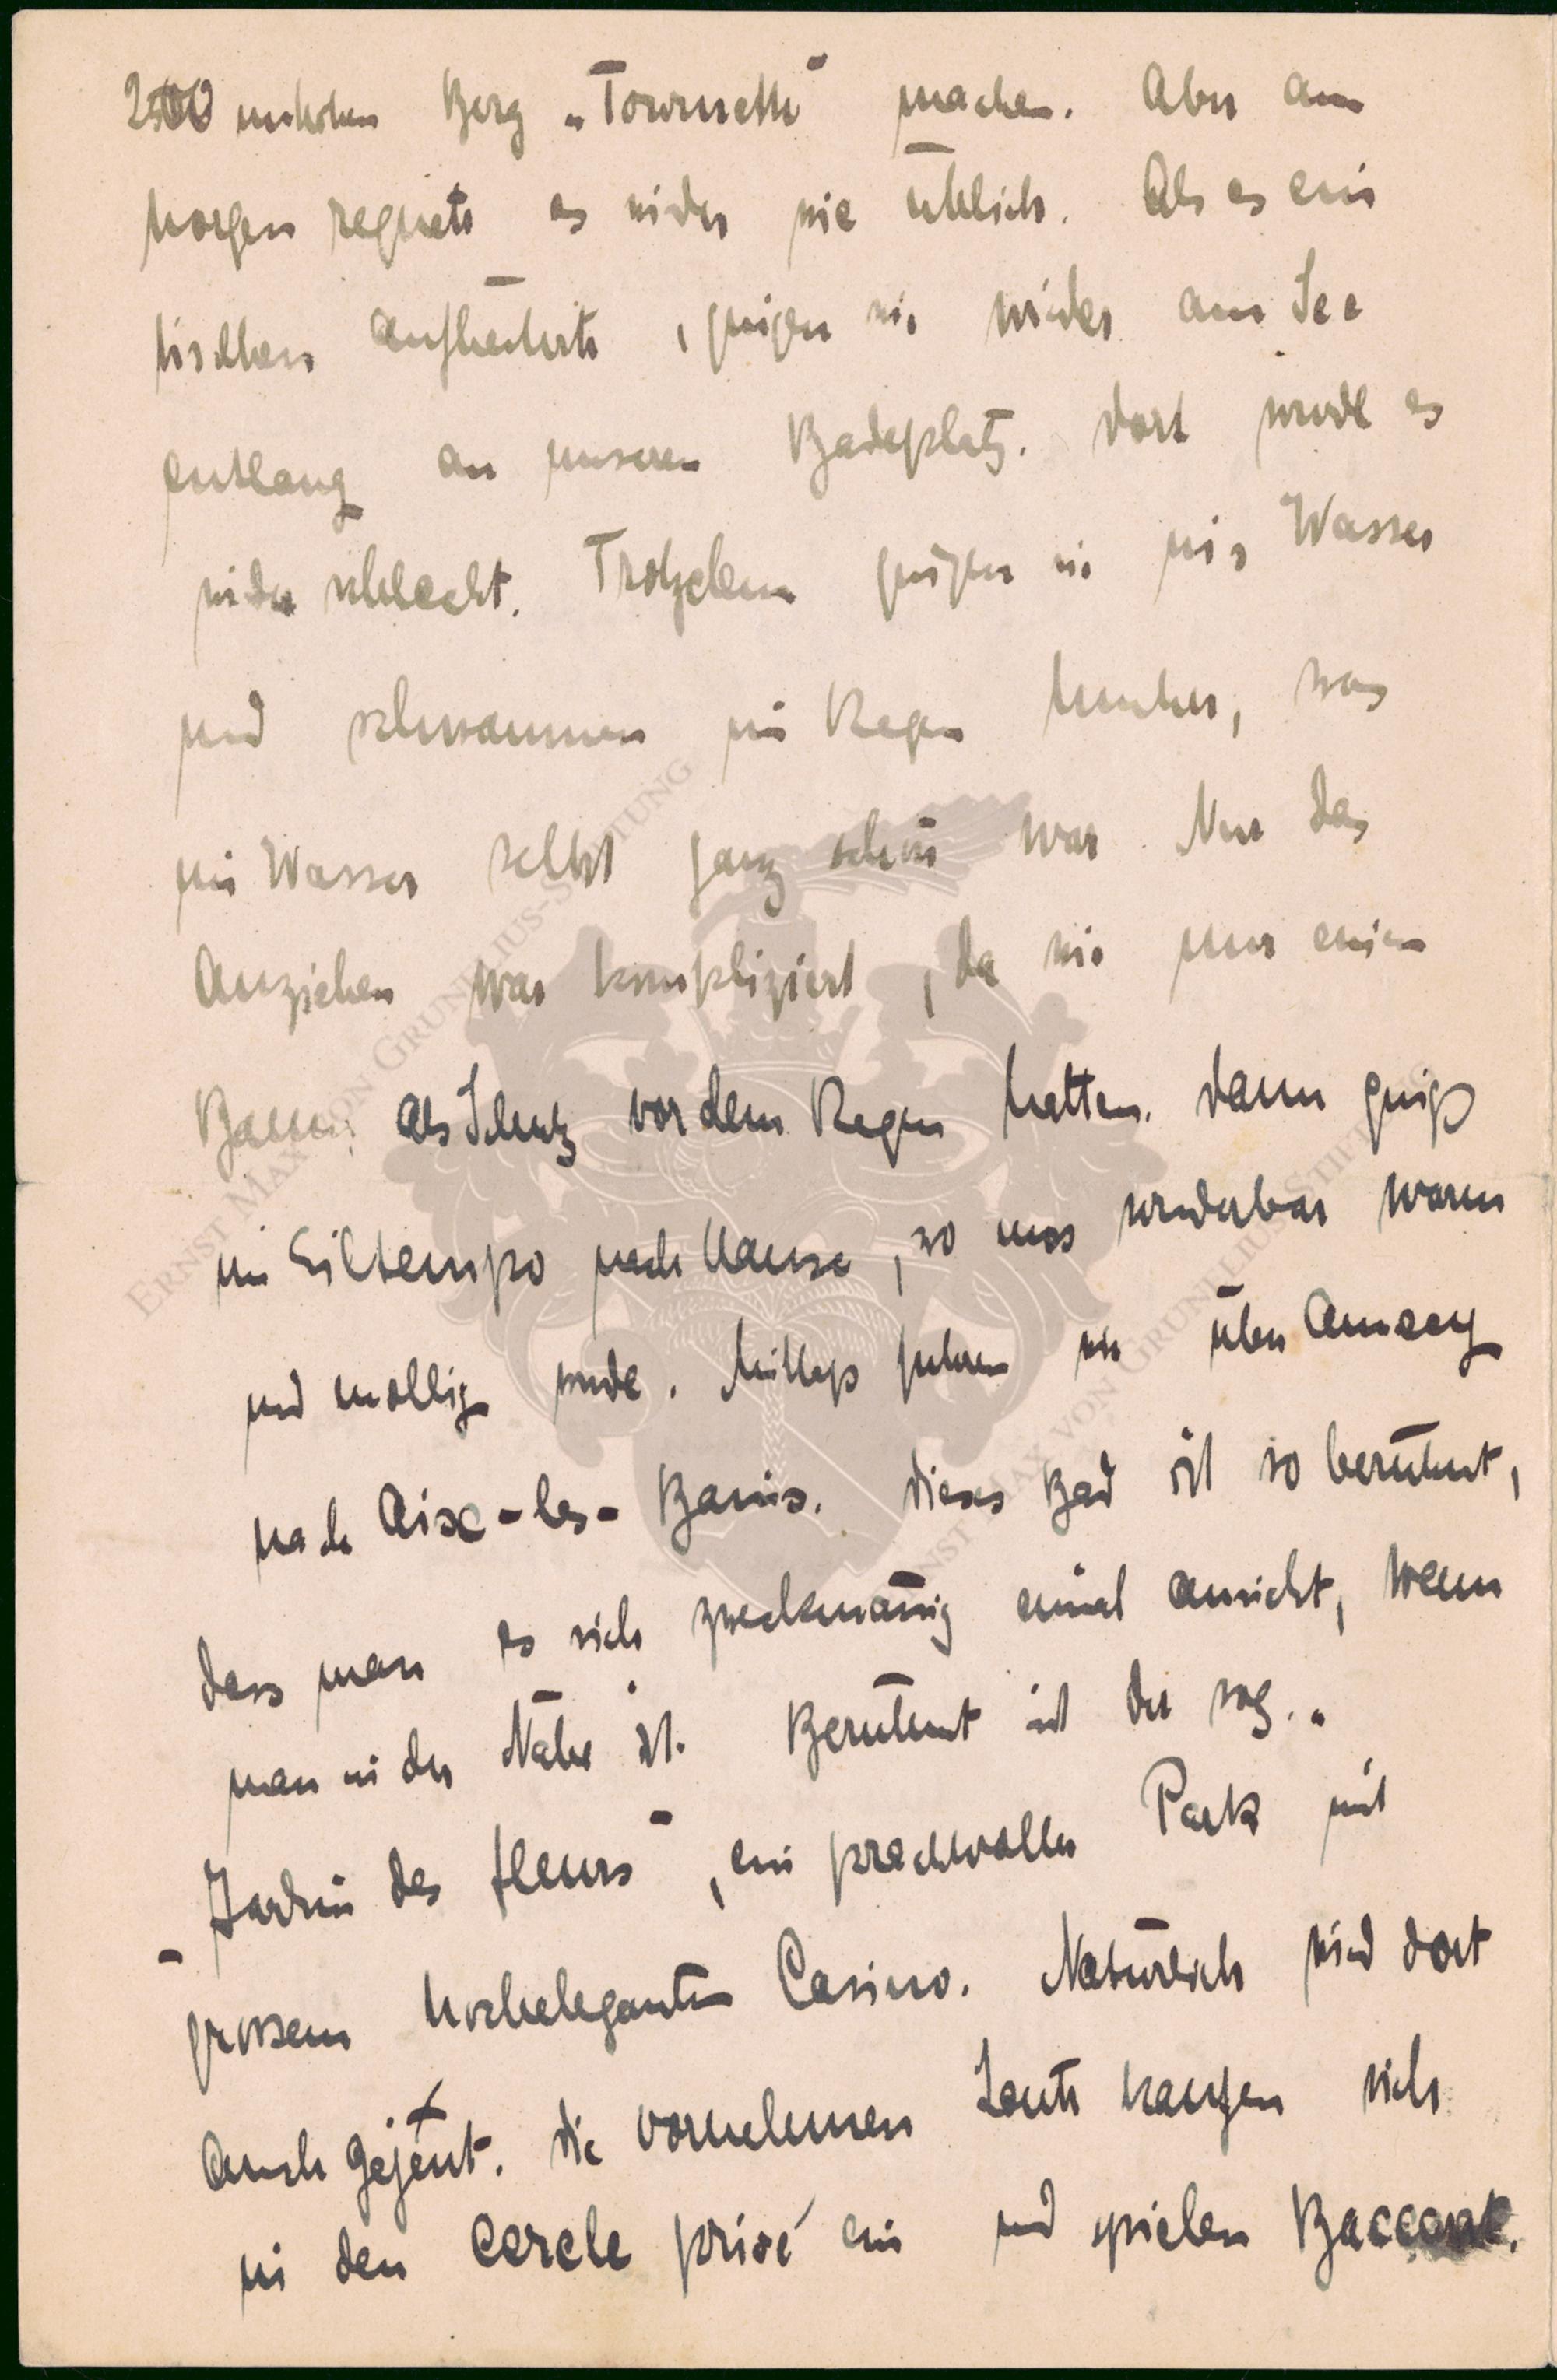 2500 m hohen Berg „Tournette" machen. Aber am
Morgen regnete es wieder wie üblich. Als es ein
bischen aufheiterte, gingen wir wieder am See
entlang an unseren Badeplatz. Dort wurde es
wieder schlecht. Trotzdem gingen wir ins Wasser
und schwammen im Regen umher, was
im Wasser selbst ganz schön war. Nur das
Anziehen war kompliziert, da wir nur einen
Baum als Schutz vor dem Regen hatten. Dann gings
im Eiltempo nach Hause, wo uns wunderbar warm
und mollig wurde. Mittags fuhren wir über Annecy
nach Aix-les-Bains. Dieses Bad ist so berühmt,
dass man es sich zweckmässig einmal ansieht, wenn
man in der Nähe ist. Berühmt ist der sog. „
Jardin des fleurs", ein prachtvoller Park mit
grossem hocheleganten Casino. Natürlich wird dort
auch gejeut. Die vornehmen Leute kaufen sich
in den Cercle privé ein und spielen Baccarat.
ERNST MAX VON GRUNELIUS-STIFTUNG
ERNST MAX VON GRUNELIUS-STIFTUNG